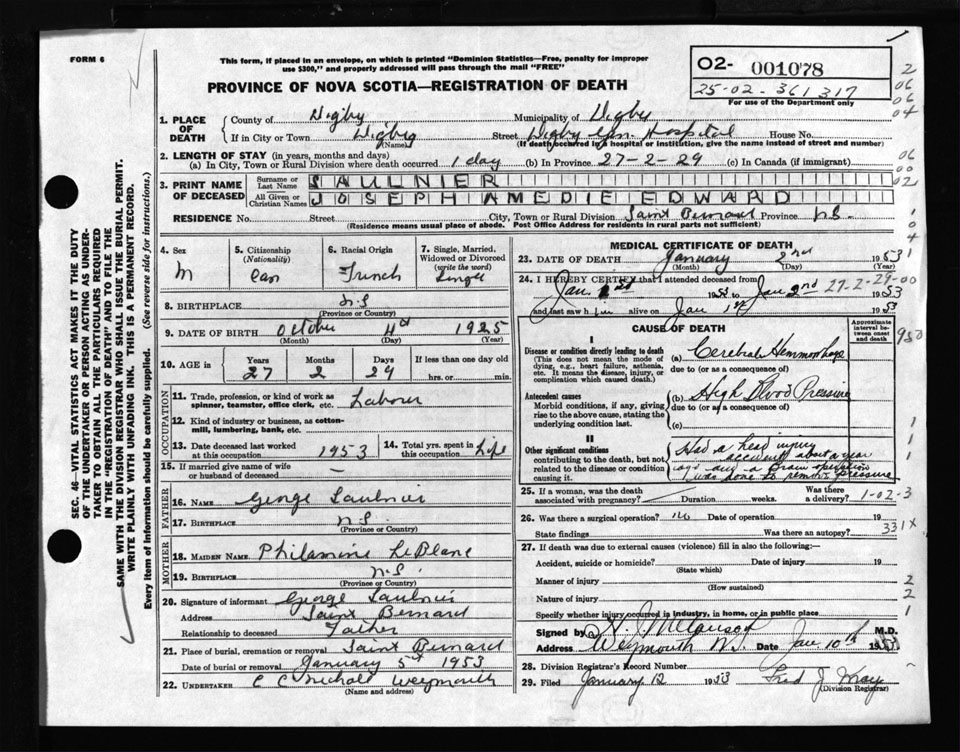 FORM 6
This form, if placed in an envelope, on which is printed "Dominion Statistics—Free, penalty for improper
use $300," and properly addressed will pass through the mail "FREE"
PROVINCE OF NOVA SCOTIA—REGISTRATION OF DEATH
02- 001078
25-02-361 317
For use of the Department only
1. PLACE OF DEATH { County of Digby Municipality of Digby
If in City or Town Digby (Name) Street Digby Gen. Hospital House No.
(If death occurred in a hospital or institution, give the name instead of street and number)
2. LENGTH OF STAY (in years, months and days)
(a) In City, Town or Rural Division where death occurred 1 day (b) In Province 27-2-29 (c) In Canada (if immigrant)
3. PRINT NAME OF DECEASED { Surname or Last Name SAULNIER
All Given or Christian Names JOSEPH AMEDIE EDWARD
RESIDENCE No. Street City, Town or Rural Division Saint Bernard Province N.S.
(Residence means usual place of abode. Post Office Address for residents in rural parts not sufficient)
4. Sex M
5. Citizenship (Nationality) Can
6. Racial Origin French
7. Single, Married, Widowed or Divorced (write the word) Single
8. BIRTHPLACE N.S (Province or Country)
9. DATE OF BIRTH October (Month) 4th (Day) 1925 (Year)
10. AGE in { Years 27 Months 2 Days 29 If less than one day old hrs. or min.
OCCUPATION
11. Trade, profession, or kind of work as spinner, teamster, office clerk, etc. Labourer
12. Kind of industry or business, as cotton-mill, lumbering, bank, etc.
13. Date deceased last worked at this occupation 1953
14. Total yrs. spent in this occupation Life
15. If married give name of wife or husband of deceased —
FATHER
16. NAME George Saulnier
17. BIRTHPLACE N.S (Province or Country)
MOTHER
18. MAIDEN NAME Philamine LeBlanc
19. BIRTHPLACE N.S. (Province or Country)
20. Signature of informant George Saulnier
Address Saint Bernard
Relationship to deceased Father
21. Place of burial, cremation or removal Saint Bernard
Date of burial or removal January 5th 1953
22. UNDERTAKER C C Nichols Weymouth
(Name and address)
MEDICAL CERTIFICATE OF DEATH
23. DATE OF DEATH January (Month) 2nd (Day) 1953 (Year)
24. I HEREBY CERTIFY that I attended deceased from
Jan 1st 1953 to Jan 2nd 1953
27-2-29-00
and last saw him alive on Jan 1st 1953
CAUSE OF DEATH
Approximate interval between onset and death
I
Disease or condition directly leading to death
(This does not mean the mode of dying, e.g., heart failure, asthenia, etc. It means the disease, injury, or complication which caused death.
(a) Cerebral Hemmorhage
due to (or as a consequence of)
Antecedent causes
Morbid conditions, if any, giving rise to the above cause, stating the underlying condition last.
(b) High Blood Pressure
due to (or as a consequence of)
(c)
II
Other significant conditions
contributing to the death, but not related to the disease or condition causing it.
Had a head injury
accident about a year
ago and a brain operation
was done to remove pressure
25. If a woman, was the death associated with pregnancy? Duration weeks. Was there a delivery?
1-02-3
26. Was there a surgical operation? no Date of operation 19
State findings Was there an autopsy?
331X
27. If death was due to external causes (violence) fill in also the following:—
Accident, suicide or homicide? Date of injury 19
(State which)
Manner of injury
(How sustained)
Nature of injury
Specify whether injury occurred in industry, in home, or in public place
Signed by M.D.
Address Weymouth N.S. Date Jan. 10th 1953
28. Division Registrar's Record Number
29. Filed January 12 1953 Fred J Wray
(Division Registrar)
SEC. 46—VITAL STATISTICS ACT MAKES IT THE DUTY
OF THE UNDERTAKER OR PERSON ACTING AS UNDER-
TAKER "TO OBTAIN ALL THE PARTICULARS REQUIRED
IN THE "REGISTRATION OF DEATH" AND TO FILE THE
SAME WITH THE DIVISION REGISTRAR WHO SHALL ISSUE THE BURIAL PERMIT.
WRITE PLAINLY WITH UNFADING INK. THIS IS A PERMANENT RECORD.
Every item of information should be carefully supplied. (See reverse side for instructions.)
2
06
06
04
06
00
02
1
0
4
950
1
1
1
2
2
1